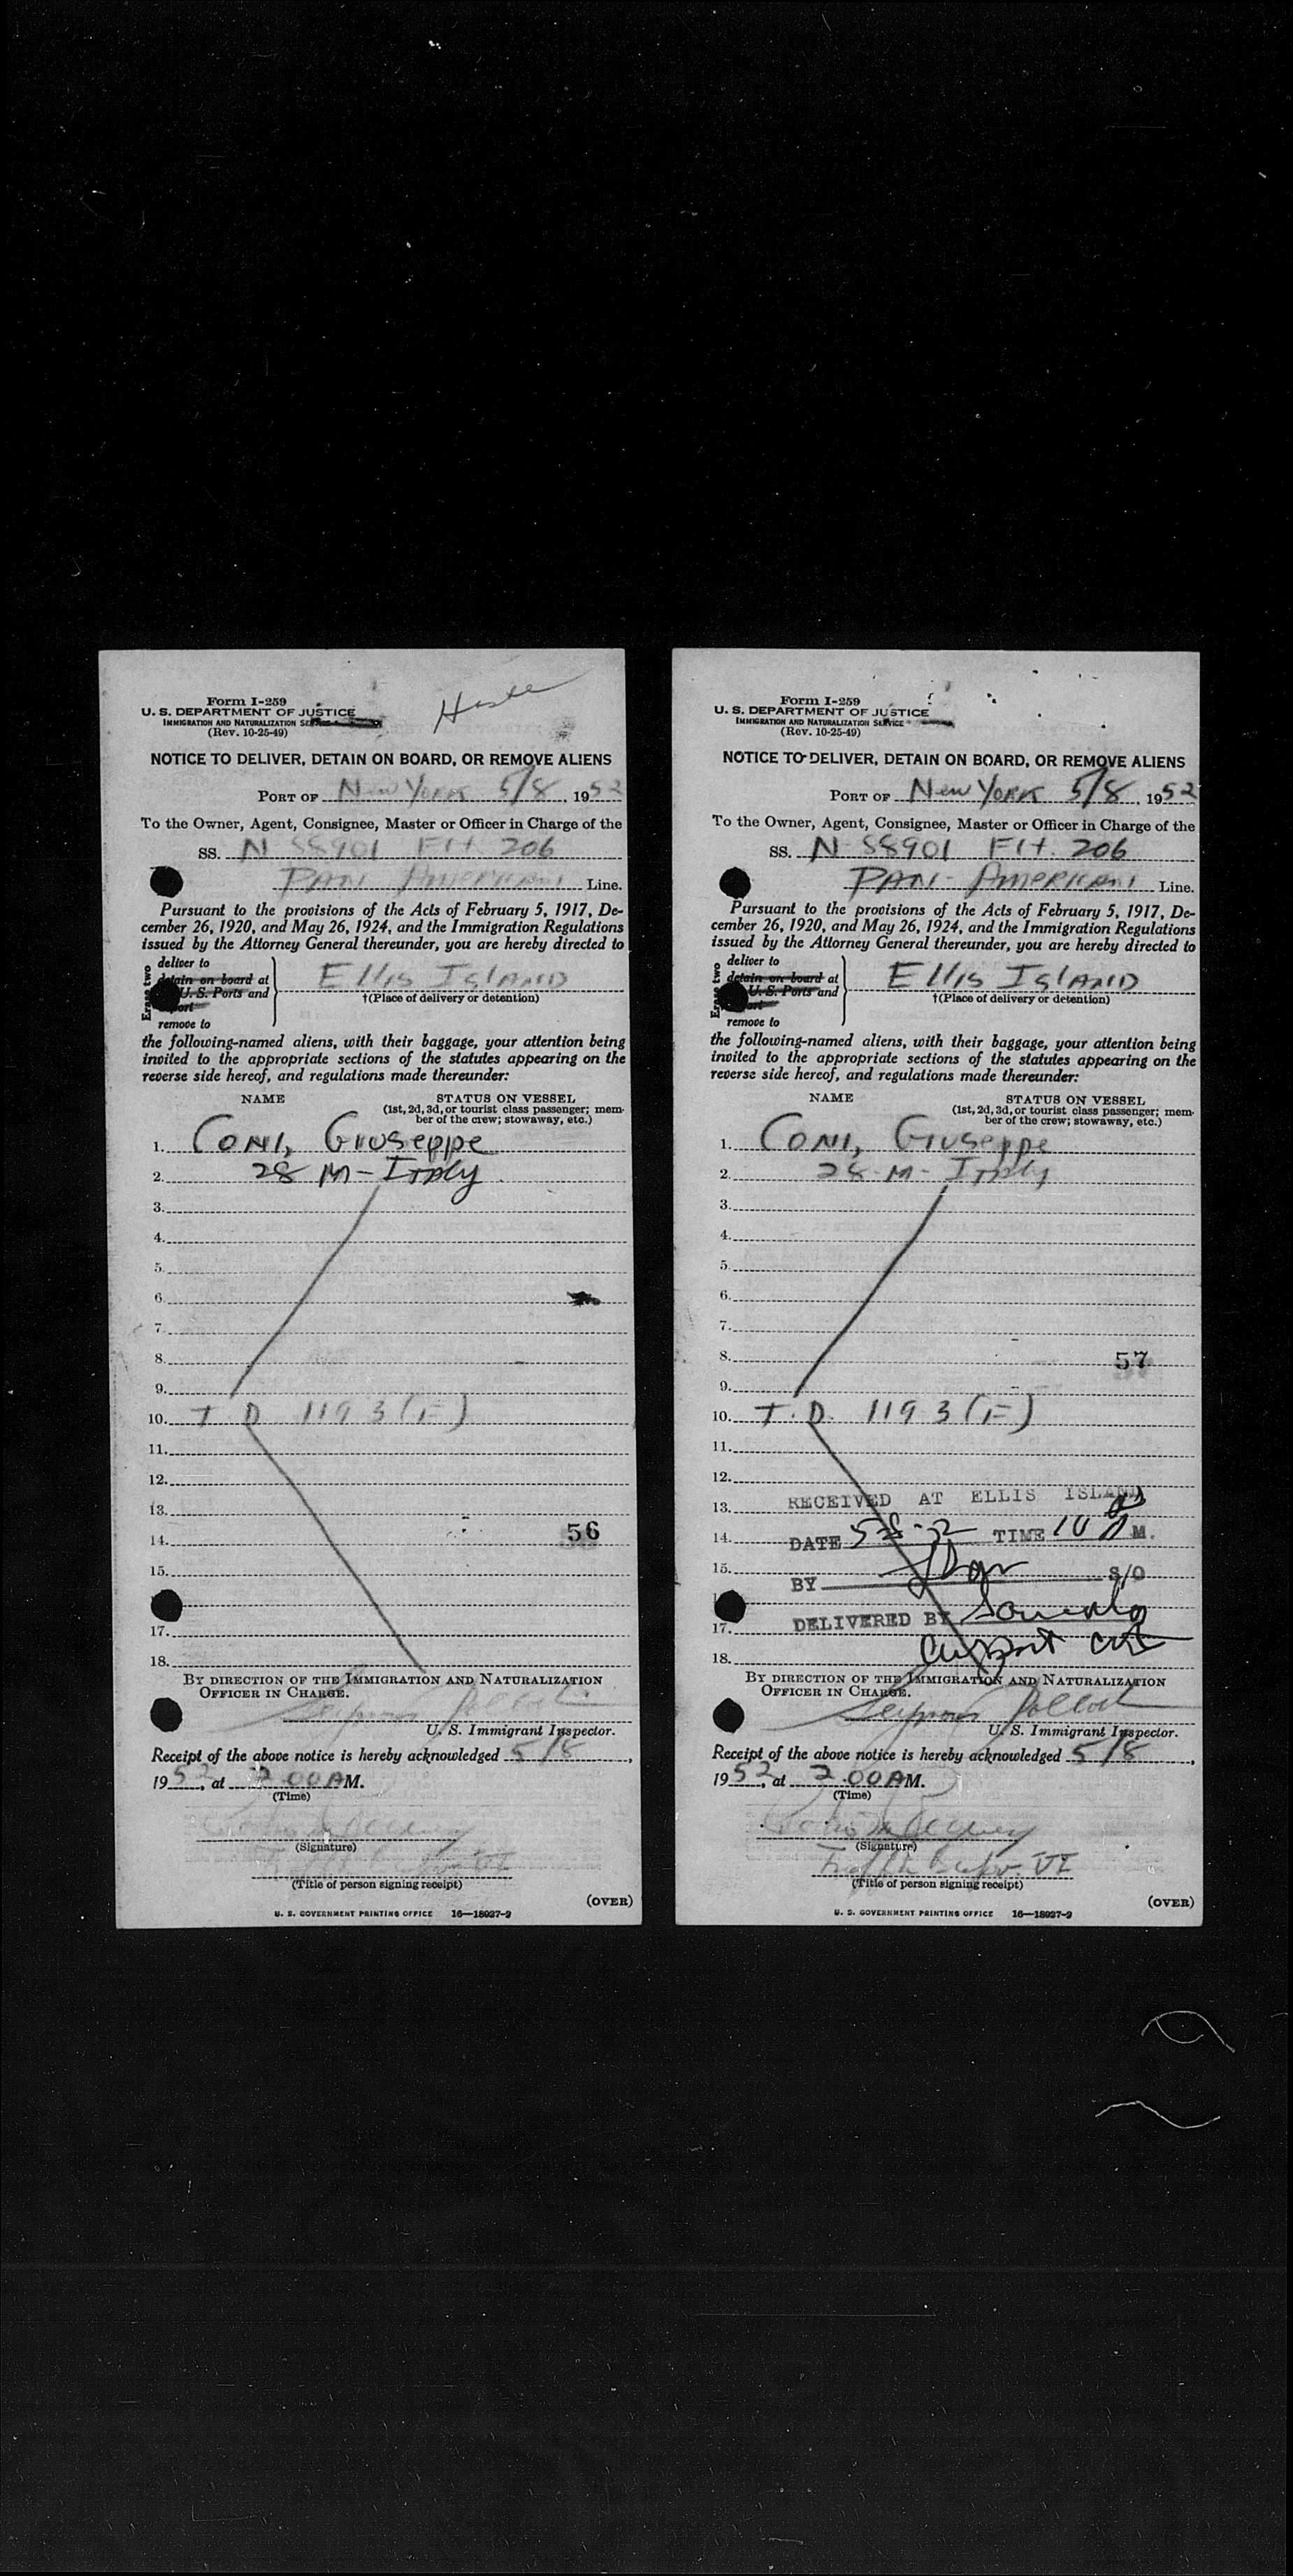 Form I-259
U. S. DEPARTMENT OF JUSTICE
IMMIGRATION AND NATURALIZATION
(Rev. 10-25-49)
NOTICE TO DELIVER, DETAIN ON BOARD, OR REMOVE ALIENS
PORT OF New York 5/8, 1952
To the Owner, Agent, Consignee, Master or Officer in Charge of the
SS. N 88901 Flt. 206
Pan American Line.
Pursuant to the provisions of the Acts of February 5, 1917, De-
cember 26, 1920, and May 26, 1924, and the Immigration Regulations
issued by the Attorney General thereunder, you are hereby directed to
Erase two
deliver to
detain on board at
U. S. Ports and
remove to
Ellis Island
†(Place of delivery or detention)
the following-named aliens, with their baggage, your attention being
invited to the appropriate sections of the statutes appearing on the
reverse side hereof, and regulations made thereunder:
NAME STATUS ON VESSEL
(1st, 2d, 3d, or tourist class passenger; mem-
ber of the crew; stowaway, etc.)
1. Coni, Giuseppe
2. 28 M - Italy
3.
4.
5.
6.
7.
8.
9.
10. T. D. 1193 (F)
11.
12.
13.
14. 56
15.
17.
18.
BY DIRECTION OF THE IMMIGRATION AND NATURALIZATION
OFFICER IN CHARGE.
Seymour Pollock
U. S. Immigrant Inspector.
Receipt of the above notice is hereby acknowledged 5/8,
1952, at 2.00 AM.
(Time)
(Signature)
(Title of person signing receipt)
(OVER)
U. S. GOVERNMENT PRINTING OFFICE 16—18927-2
Form I-259
U. S. DEPARTMENT OF JUSTICE
IMMIGRATION AND NATURALIZATION SERVICE
(Rev. 10-25-49)
NOTICE TO DELIVER, DETAIN ON BOARD, OR REMOVE ALIENS
PORT OF New York 5/8, 1952
To the Owner, Agent, Consignee, Master or Officer in Charge of the
SS. N 88901 Flt. 206
Pan-American Line.
Pursuant to the provisions of the Acts of February 5, 1917, De-
cember 26, 1920, and May 26, 1924, and the Immigration Regulations
issued by the Attorney General thereunder, you are hereby directed to
Erase two
deliver to
detain on board at
U. S. Ports and
remove to
Ellis Island
†(Place of delivery or detention)
the following-named aliens, with their baggage, your attention being
invited to the appropriate sections of the statutes appearing on the
reverse side hereof, and regulations made thereunder:
NAME STATUS ON VESSEL
(1st, 2d, 3d, or tourist class passenger; mem-
ber of the crew; stowaway, etc.)
1. Coni, Giuseppe
2. 28 M - Italy
3.
4.
5.
6.
7.
8. 57
9.
10. T. D. 1193 (F)
11.
12.
13. RECEIVED AT ELLIS ISLAND
14. DATE 5-8-52 TIME 10 A M.
15.
BY S/O
17. DELIVERED BY
18. Airport
BY DIRECTION OF THE IMMIGRATION AND NATURALIZATION
OFFICER IN CHARGE.
Seymour Pollock
U. S. Immigrant Inspector.
Receipt of the above notice is hereby acknowledged 5/8,
1952, at 2.00 AM.
(Time)
(Signature)
(Title of person signing receipt)
(OVER)
U. S. GOVERNMENT PRINTING OFFICE 16—18927-2